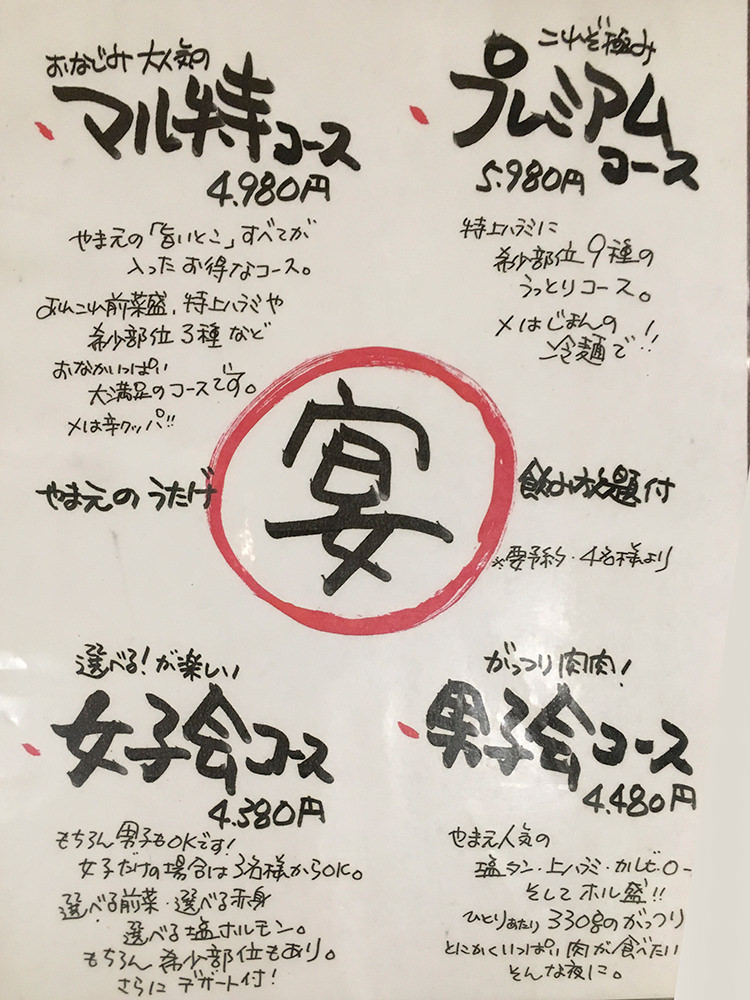 おなじみ 大人気の
マル特コース
4.980円
やま元の「旨いとこ」すべてが
入ったお得なコース。
あれこれ前菜盛、特上ハラミや
希少部位3種など
おなかいっぱい
大満足のコースです。
〆は辛クッパ!!
これぞ極み
プレミアム
コース
5.980円
特上ハラミに
希少部位9種の
うっとりコース。
〆はじまんの
冷麺で!!
やま元のうたげ
宴
飲み放題付
※要予約・4名様より
選べる!が楽しい
女子会コース
4.380円
もちろん男子もOKです!
女子だけの場合は3名様からOK。
選べる前菜・選べる赤身
選べる塩ホルモン。
もちろん希少部位もあり。
さらにデザート付!
がっつり肉肉!
男子会コース
4.480円
やま元人気の
塩タン・上ハラミ・カルビ・ロー
そしてホル盛!!
ひとりあたり330gのがっつり
とにかくいっぱい肉が食べたい
そんな夜に。